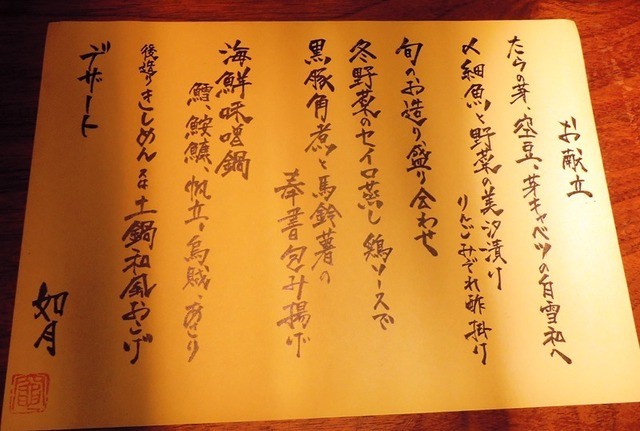 お献立
たらの芽、空豆、芽キャベツの白雪和へ
〆細魚と野菜の美汐漬け
りんごみぞれ酢掛け
旬のお造り盛り合わせ
冬野菜のセイロ蒸し 鶏ソースで
黒豚角煮と馬鈴薯の
奉書包み揚げ
海鮮味噌鍋
鱈、鮟鱇、帆立、烏賊、あさり
後造りきしめん又は土鍋和風おこげ
デザート
如月